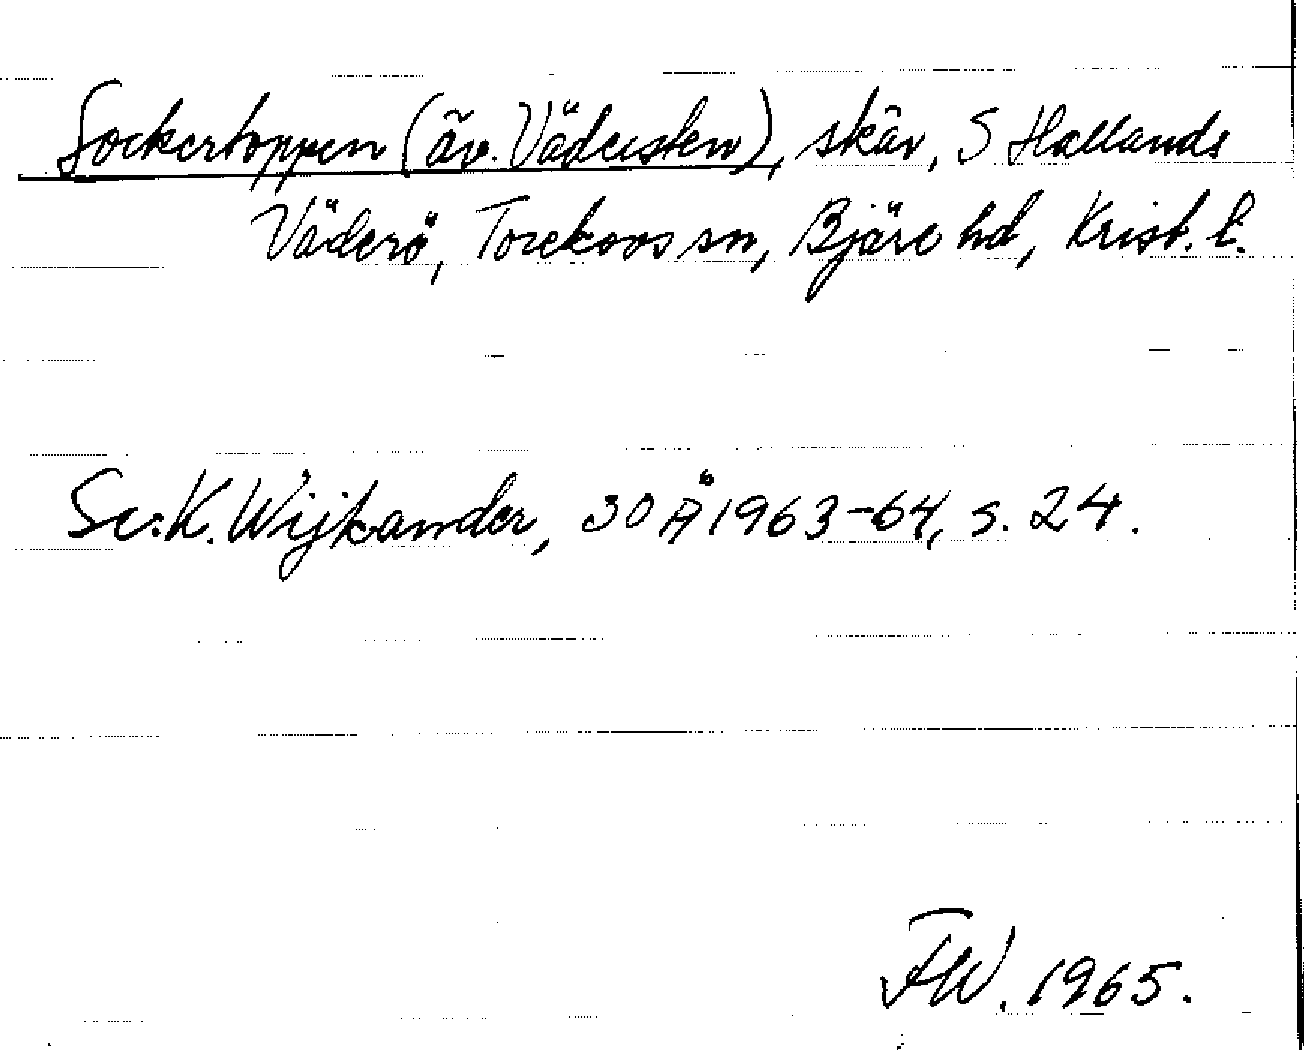 Sockertoppen (äv. Vädersten), skär, S Hallands
Väderö, Torekovs sn, Bjäre hd, Krist. l.
Se: K. Wijkander, 30 Å 1963-64, s. 24.
FW. 1965.